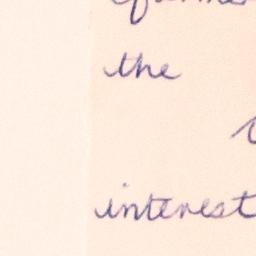 the
interest